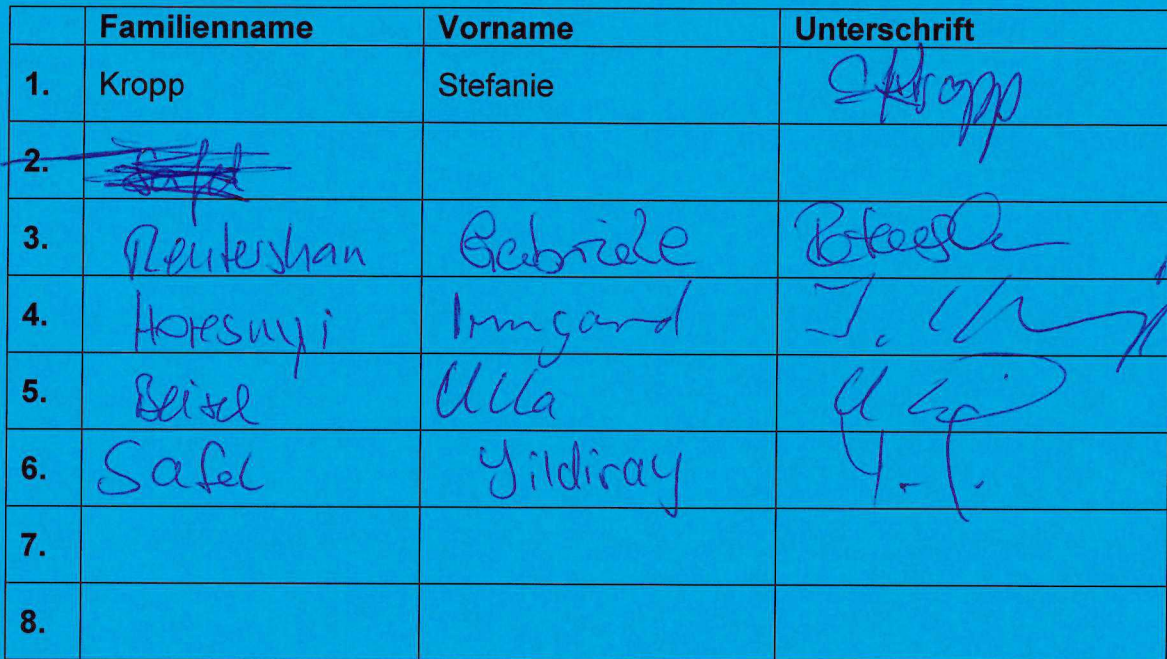 Familienname Vorname Unterschrift
1. Kropp Stefanie SKropp
2.
3. Reutershan Gabriele
4. Irmgard
5. Beisel Ulla
6. Safel Yildiray Y. J.
7.
8.